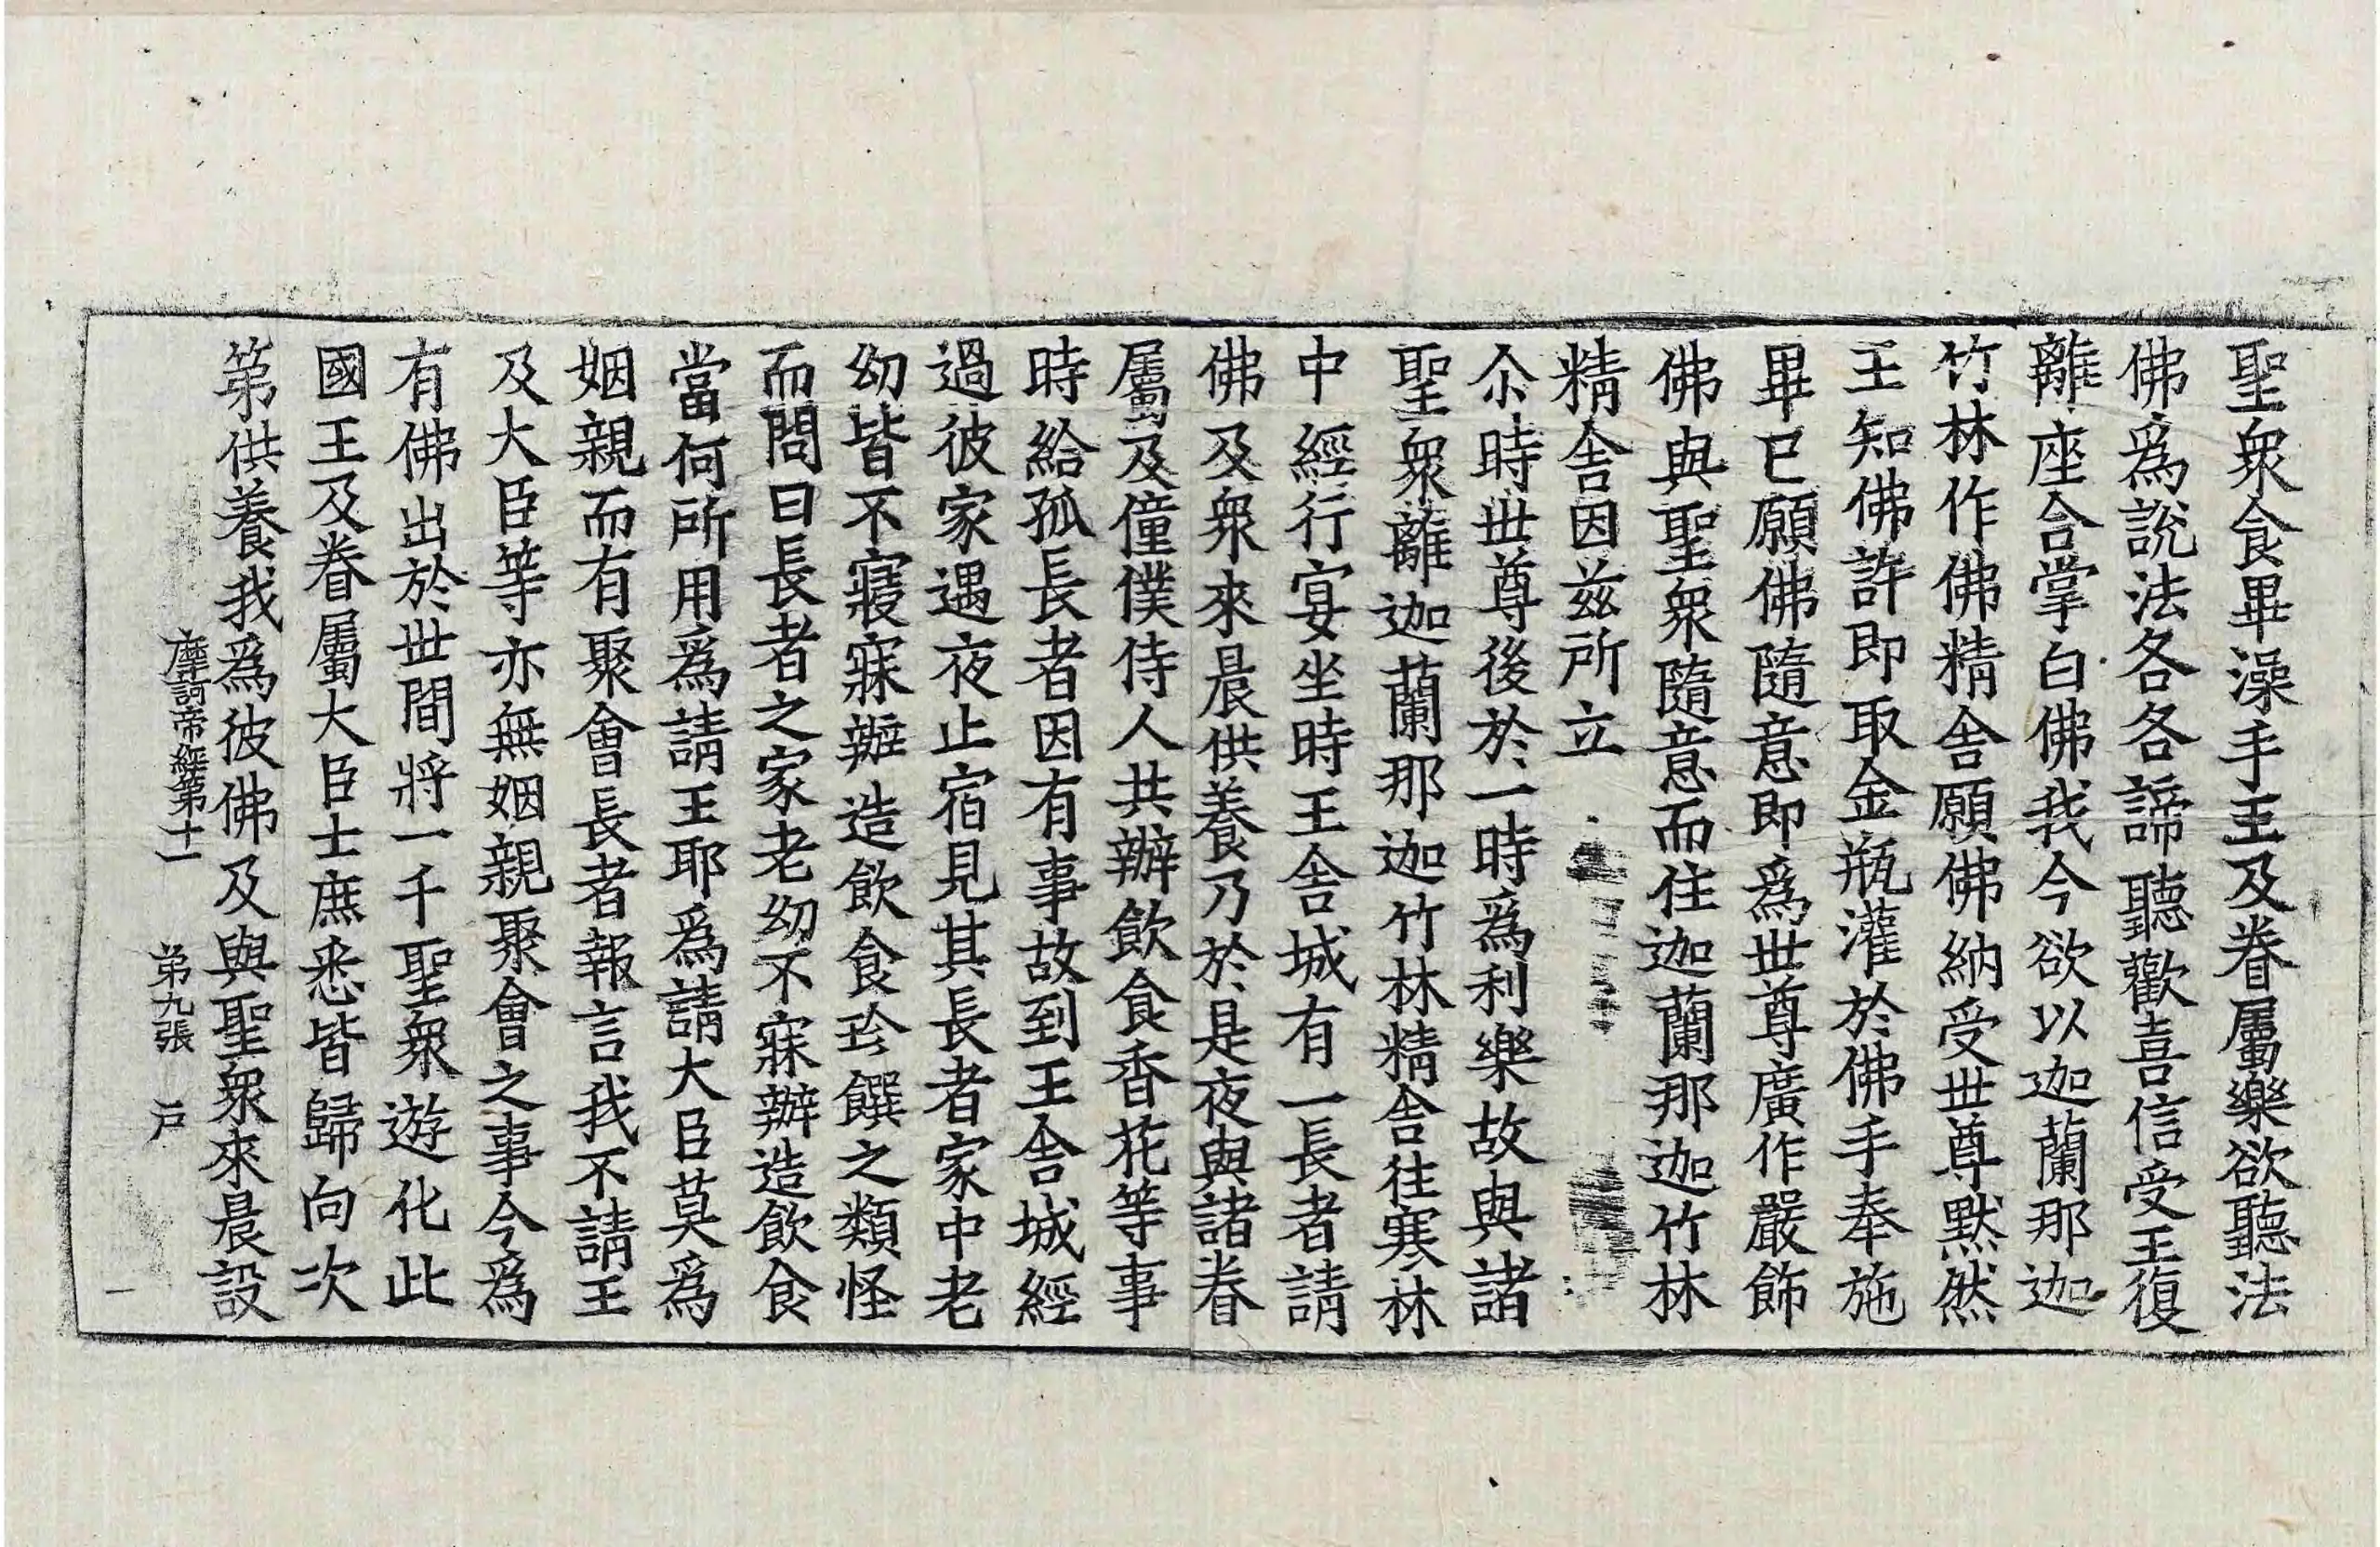 聖衆食畢澡手王及眷屬樂欲聽法
佛爲說法各各諦聽歡喜信受王復
離座合掌白佛我今欲以迦蘭那迦
竹林作佛精舍願佛納受世尊默然
王知佛許即取金瓶灌於佛手奉施
畢已願佛隨意即爲世尊廣作嚴飾
佛與聖衆隨意而住迦蘭那迦竹林
精舍因兹所立
尒時世尊後於一時爲利樂故與諸
聖衆離迦蘭那迦竹林精舍往寒林
中經行宴坐時王舍城有一長者請
佛及衆來晨供養乃於是夜與諸眷
屬及僮僕侍人共辦飲食香花等事
時給孤長者因有事故到王舍城經
過彼家遇夜止宿見其長者家中老
幼皆不寢寐辦造飲食珎饌之類怪
而問曰長者之家老幼不寐辦造飲食
當何所用爲請王耶爲請大臣莫爲
姻親而有聚會長者報言我不請王
及大臣等亦無姻親聚會之事今爲
有佛出於世間將一千聖衆遊化此
國王及眷屬大臣士庶悉皆歸向次
第供養我爲彼佛及與聖衆來晨設
摩訶帝經第十一 第九張 戶